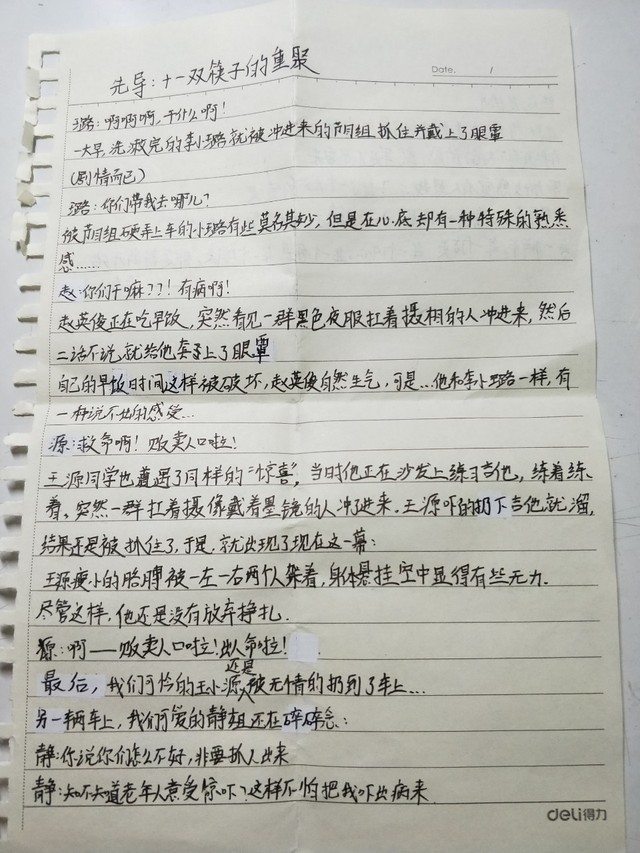 先导:十一双筷子的重聚
Date. /
3路:啊啊啊,干什么啊!
一大早,洗漱完的李小璐就被冲进来的节目组抓住并戴上了眼罩
(剧情而已)
璐:你们带我去哪儿?
被节目组硬弄上车的小璐有些莫名其妙,但是在心底却有一种特殊的熟悉
感……
赵:你们干嘛??!有病啊!
赵英俊正在吃早饭,突然看见一群黑色夜服扛着摄相的人冲进来,然后
二话不说就给他套上了眼罩
自己的早饭时间这样被破坏,赵英俊自然生气,可是…他和李小璐一样,有
一种说不出的感受…
源:救命啊!贩卖人口啦!
王源同学也遭遇了同样的"惊喜",当时他正在沙发上练习吉他,练着练
着、突然一群扛着摄像戴着墨镜的人冲了进来.王源吓的扔下吉他就溜,
结果还是被抓住了,于是,就出现了现在这一幕:
王源瘦小的胳膊被一左一右两个人架着,身体悬挂空中显得有些无力.
尽管这样,他还是没有放弃挣扎.
源:啊——贩卖人口啦!出人命啦!
最后,我们可怜的王小源还是被无情的扔到了车上…
另一辆车上,我们可爱的静姐还在碎碎念:
静:你说你们怎么不好,非要抓人出来
静:知不知道老年人禁受惊吓?这样不怕把我吓出病来
deli得力